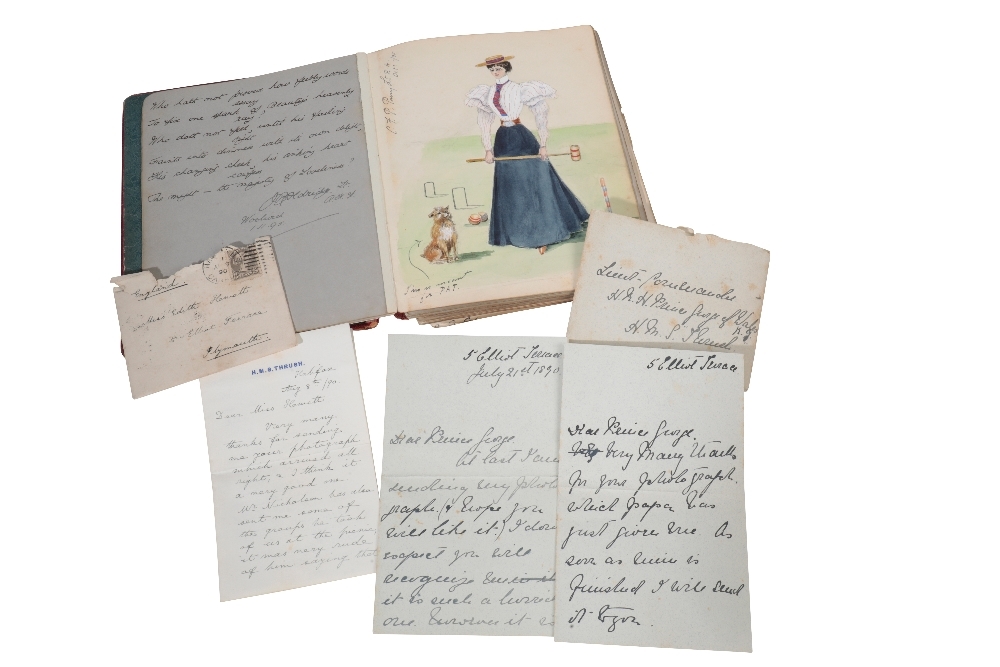 Who hath not proved how feebly words
essay
To fix one spark of Beauty's heavenly
ray
Who doth not feel, until his failing
sight
Faints into dimness with its own delight,
His changing cheek, his sinking heart
confess
The might – the majesty of Loveliness?
Woolwich
England
Miss Edith Howett
5 Elliot Terrace
Plymouth
Lieut-Commander
H.R.H Prince George of Wales
H.M.S. Thrush
H.M.S. THRUSH.
Halifax
Aug 8th /90
Dear Miss Howett
Very many
thanks for sending
me your photograph
which arrived all
right, & I think it
a very good one.
Mr Nicholson has also
sent me some of
the groups he took
of us at the
it was very rude
of him saying that
5 Elliot Terrace
July 21st 1890
Dear Prince George
At last I am
sending my photo
graph. (I hope you
will like it.) I don't
expect you will
recognize me
it is such a horrid
one. However it is
5 Elliot Terrace
Dear Prince George.
Very Many thanks
for your photograph.
which papa has
just given me. As
soon as mine is
finished I will send
it to you.